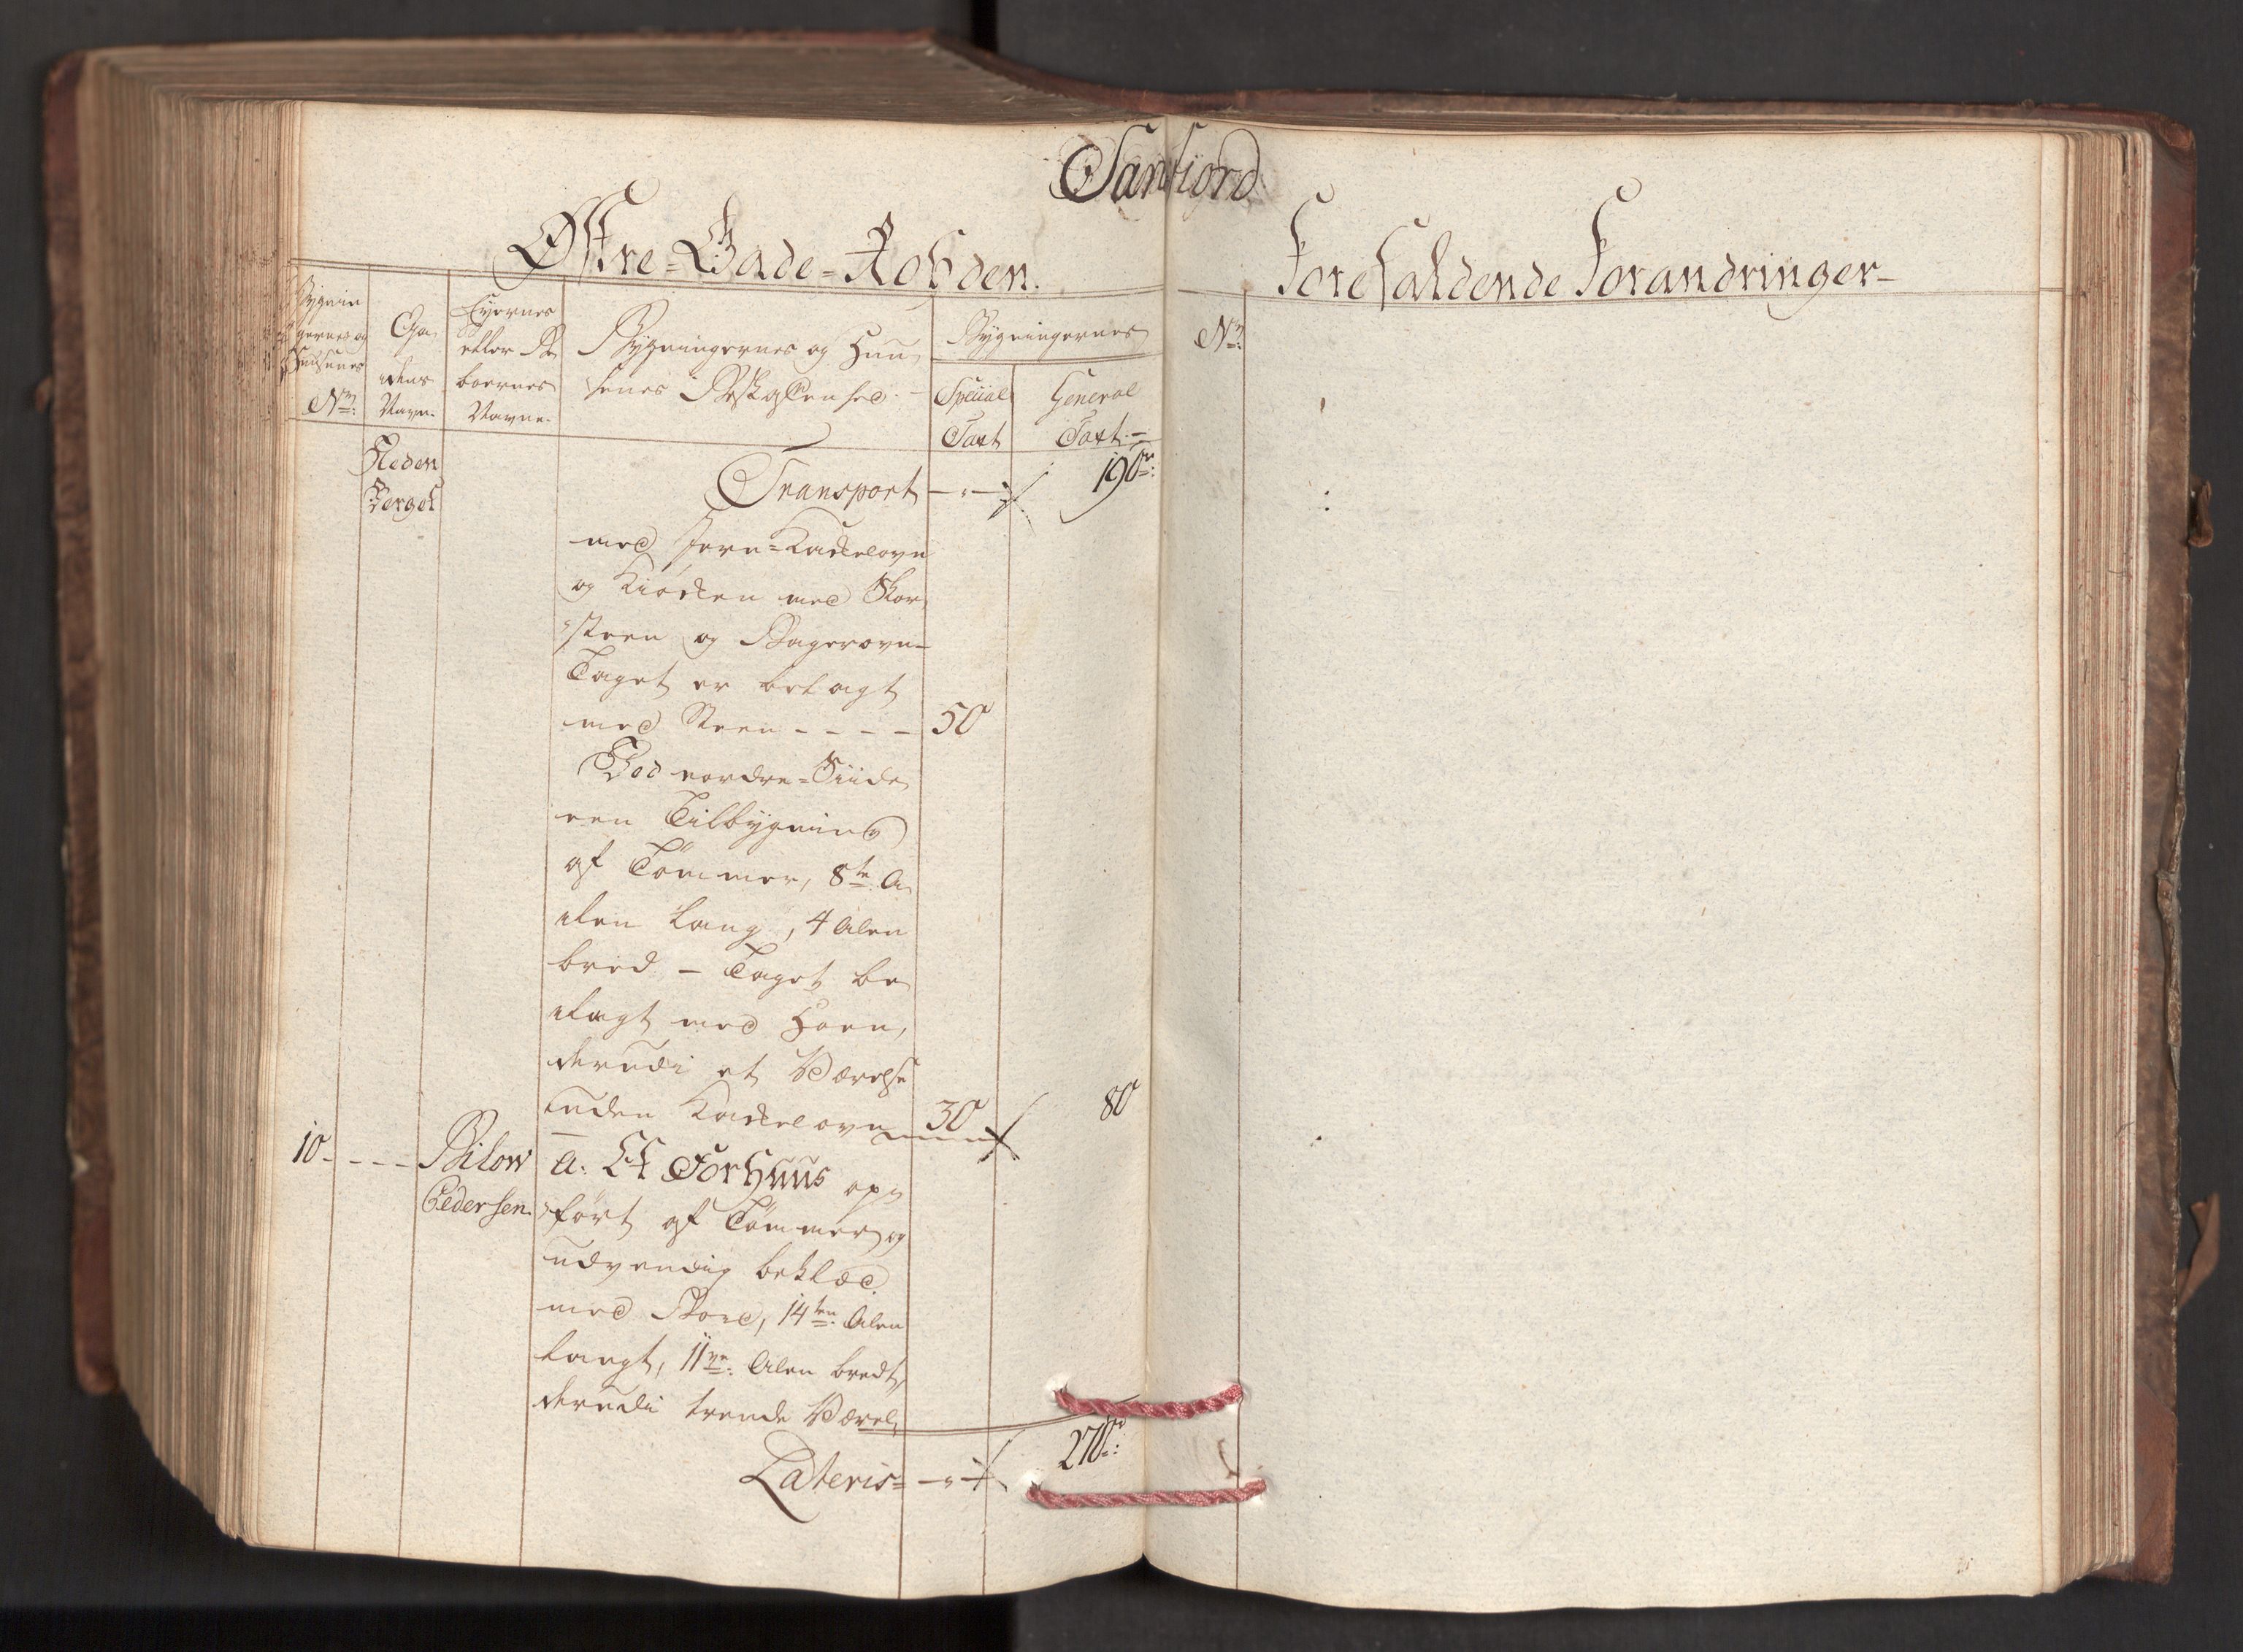 Sanfiord
Østre-Gade-Rohden.
Forefaldende Forandringer-
Bygnin
gernes og
Huusenes
No:
Ga
dens
Navn-
Eyernes
eller Be
boernes
Navne-
Bygningernes og Huu
senes Beskaffenhed.-
Bygningernes
Special
Taxt
General
Taxt.-
No:
Neden
Berget
Transport - " - 190rd:
med Jern-Kackelovn
og Kiöcken med Skor
steen og Bagerovn-
Taget er belagt
med Steen - - - - 50
Ved nordre-Siide
een Tilbygning
af Tömmer, 8te A
len lang, 4 Alen
bred - Taget be
lagt med Steen,
derudi et Værelse
uden Kackelovn 30 80
10 - - - - Bilow
Pedersen.
a. Et Forhuus op
fört af Tömmer og
udvendig beklæd
med Bord, 14ten Alen
langt, 11ve: Alen bredt,
derudi trende Værel
Lateris= - " - 270rd: